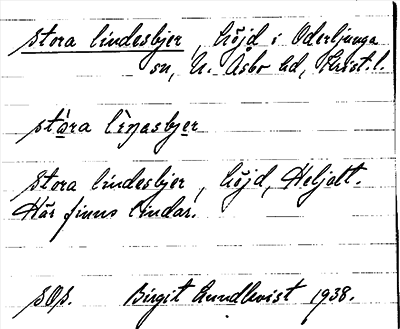 stora lindesbjer, höjd i Oderljunga
sn, N. Åsbo hd, Krist. l.
stora lindesbjer, höjd, Heljalt.
Här finns lindar.
Birgit Lundkvist 1938.